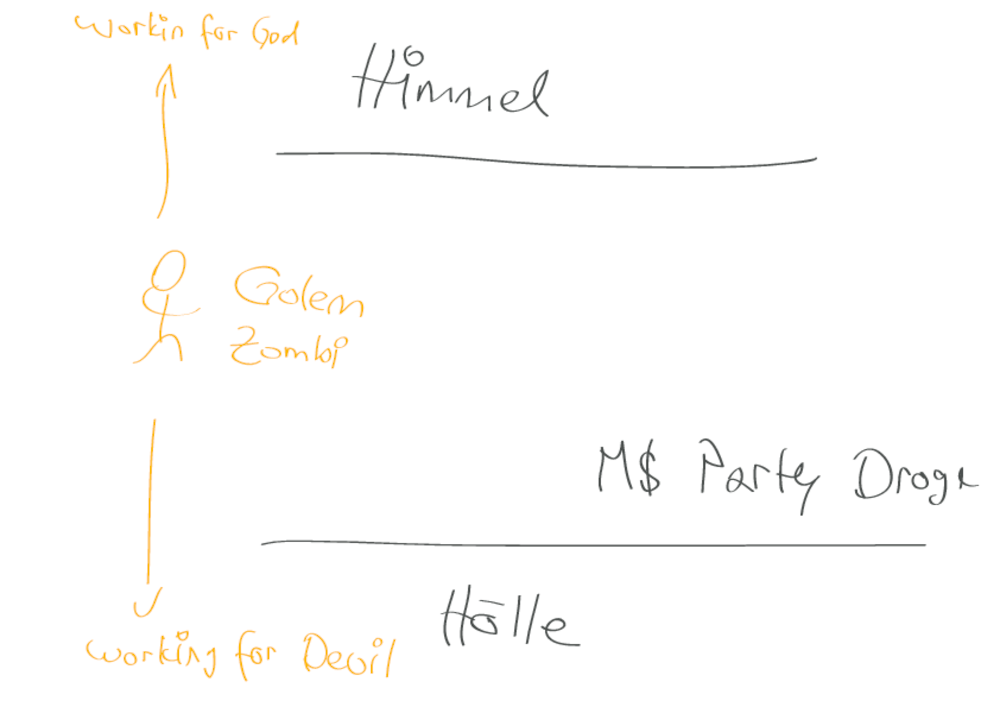 Workin for God
Himmel
Golem
Zombi
M$ Party Droge
Hölle
working for Devil